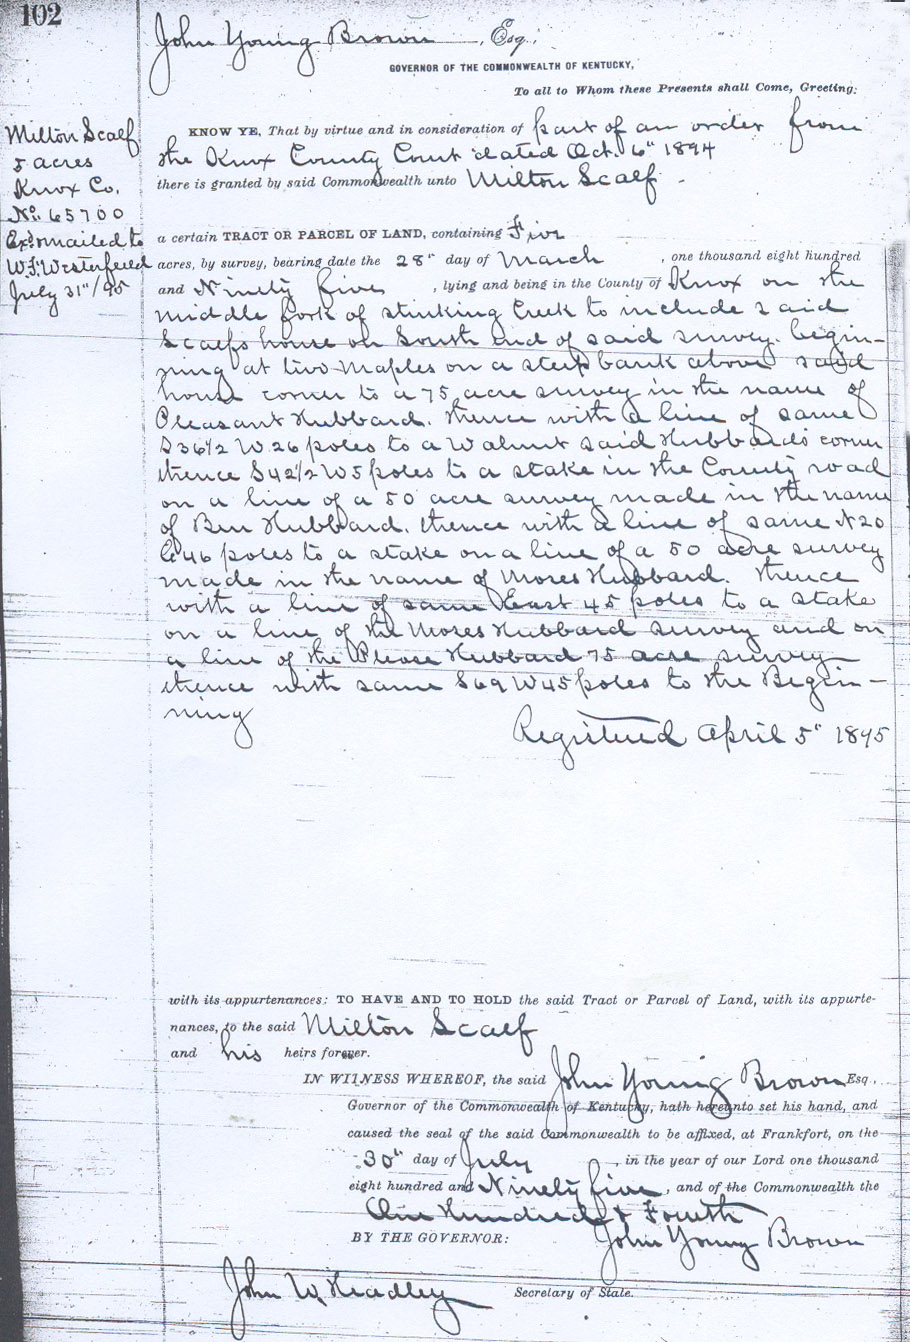 102
John Young Brown, Esq.
GOVERNOR OF THE COMMONWEALTH OF KENTUCKY,
To all to Whom these Presents shall Come, Greeting:
Milton Scalf
5 acres
Knox Co.
No. 65700
Exd. & mailed to
W.F. Westerfield
July 31"/95
KNOW YE, That by virtue and in consideration of part of an order from
the Knox County Court dated Oct. 6" 1894
there is granted by said Commonwealth unto Milton Scalf
a certain TRACT OR PARCEL OF LAND, containing Five
acres, by survey, bearing date the 28" day of March, one thousand eight hundred
and Ninety five, lying and being in the County of Knox on the
middle fork of stinking Creek to include said
Scalfs house on South end of said survey. begin-
ning at two Maples on a steep bank above said
house corner to a 75 acre survey in the name of
Pleasant Hubbard. thence with a line of same
S36 1/2 W 26 poles to a Walnut said Hubbards corner
thence S42 1/2 W 5 poles to a stake in the County road
on a line of a 50 acre survey made in the name
of Ben Hubbard. thence with a line of same N20
E46 poles to a stake on a line of a 50 acre survey
made in the name of Moses Hubbard. thence
with a line of same East 45 poles to a stake
on a line of the Moses Hubbard survey and on
a line of the Please Hubbard 75 acre survey
thence with same S69 W45 poles to the Begin-
ning
Registered April 5" 1895
with its appurtenances: TO HAVE AND TO HOLD the said Tract or Parcel of Land, with its appurte-
nances, to the said Milton Scalf
and his heirs forever.
IN WITNESS WHEREOF, the said John Young Brown Esq.,
Governor of the Commonwealth of Kentucky, hath hereunto set his hand, and
caused the seal of the said Commonwealth to be affixed, at Frankfort, on the
30" day of July, in the year of our Lord one thousand
eight hundred and Ninety five, and of the Commonwealth the
One Hundred & Fourth
BY THE GOVERNOR: John Young Brown
John W. Headley Secretary of State.